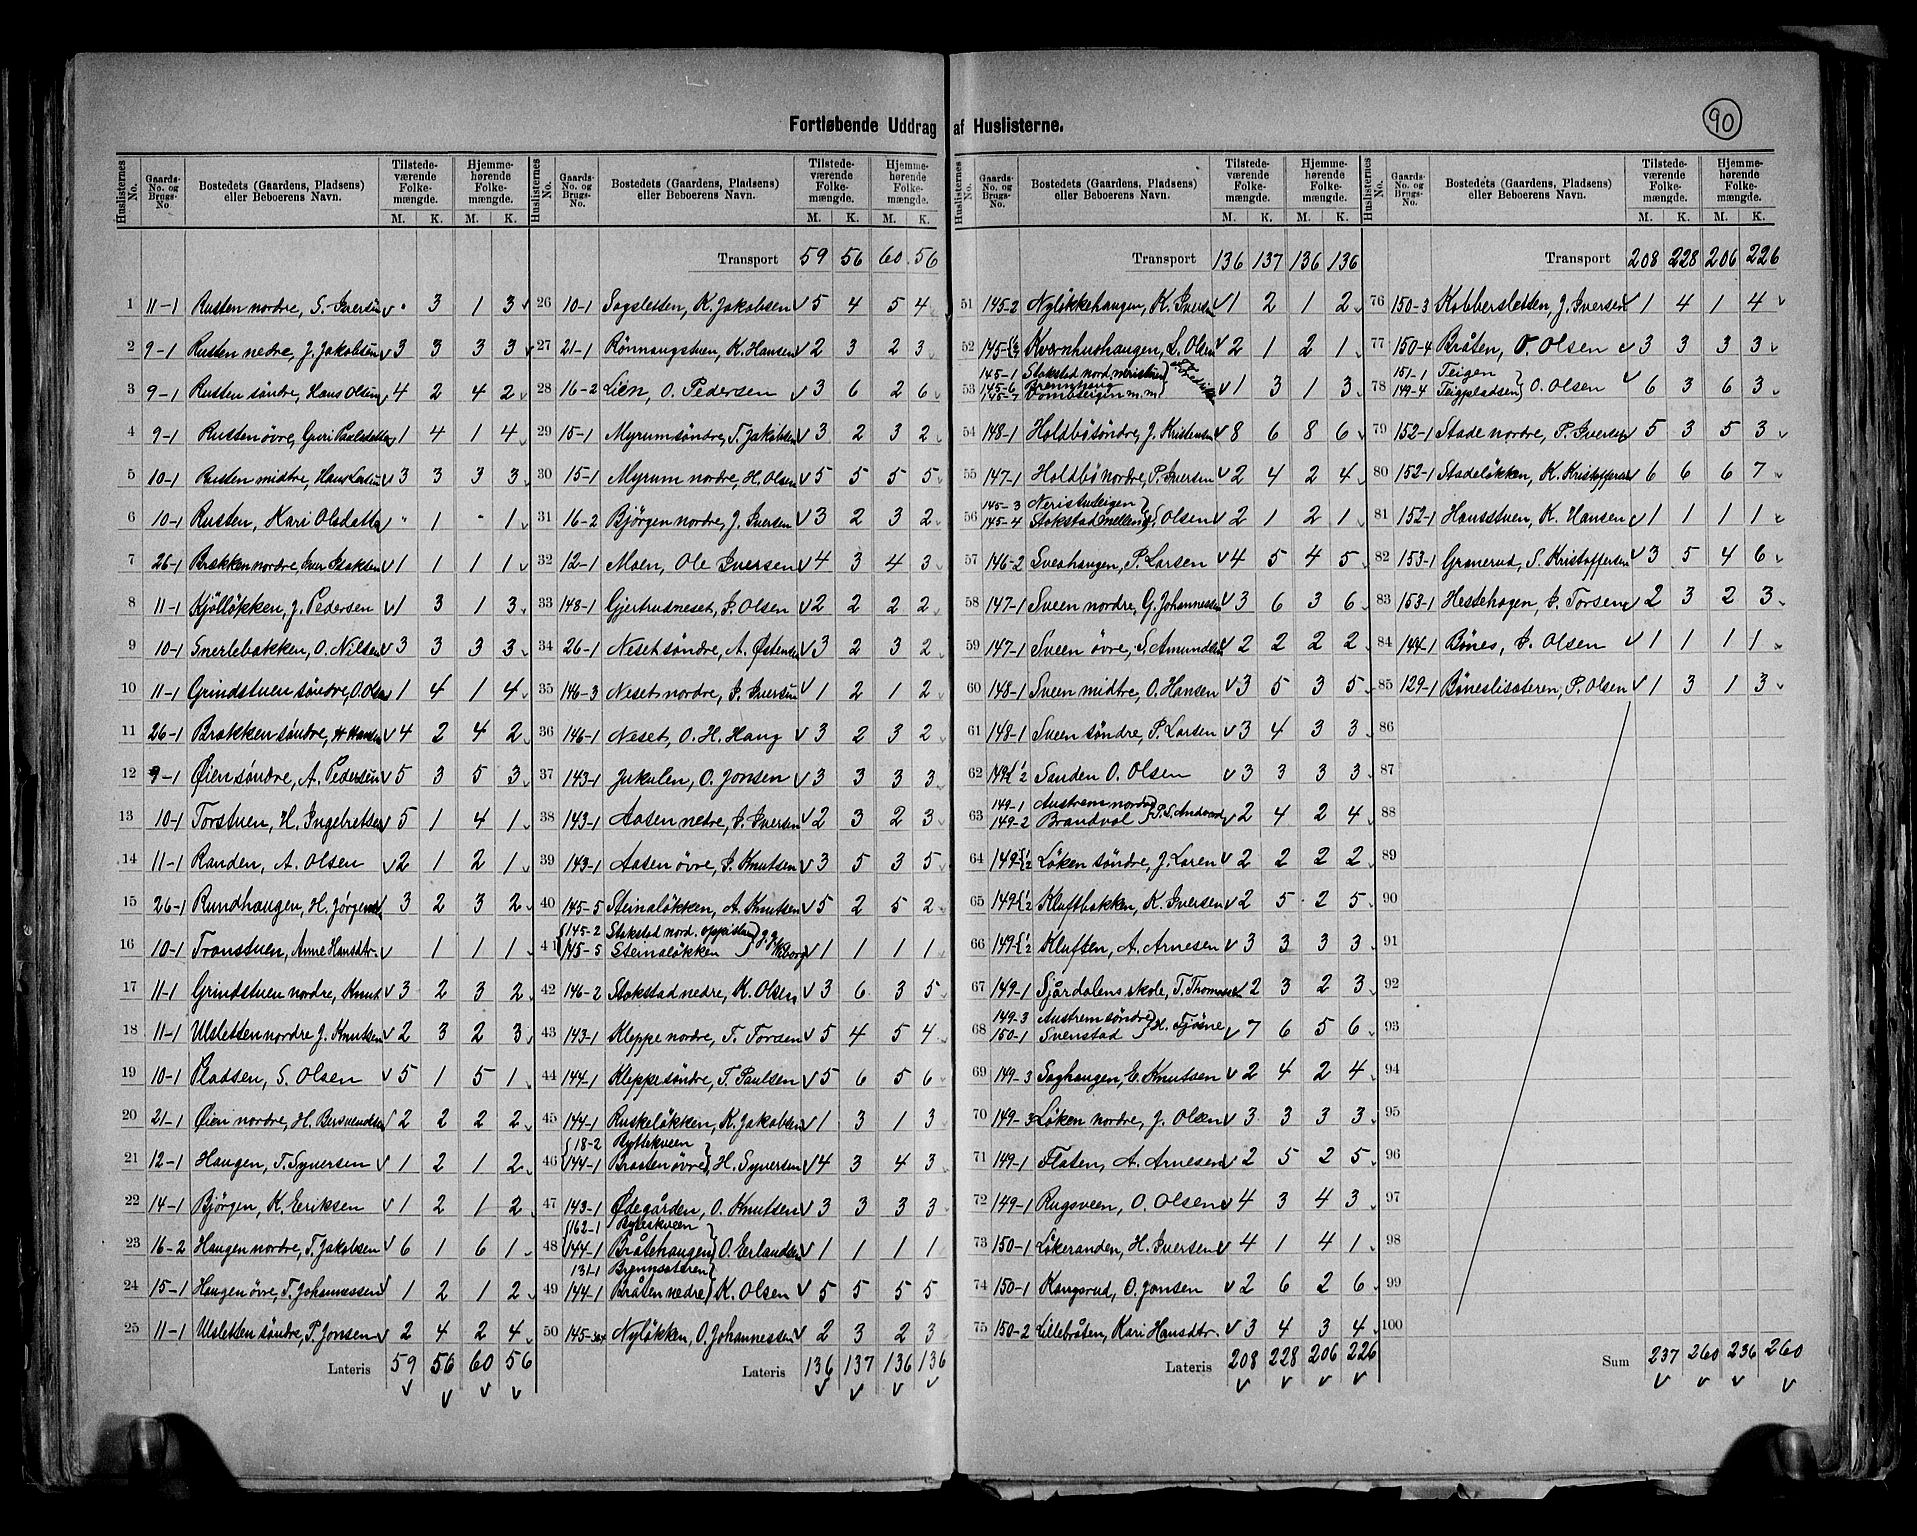 Fortløbende Uddrag af Huslisterne.
90
Huslisternes No. Gaards-No. og Brugs-No Bostedets (Gaardens, Pladsens) eller Beboerens Navn. Tilstedeværende Folkemængde. M. K. Hjemmehørende Folkemængde. M. K.
1 11-1 Rusten nordre, S. Iversen v " 3 1 3
2 9-1 Rusten nedre, J. Jakobsen v 3 3 3 3
3 9-1 Rusten søndre, Hans Olsen 4 2 4 2
4 9-1 Rusten øvre, Guri Paalsdatter 1 4 1 4
5 10-1 Rusten midtre, Hans Larsen v 3 3 3 3
6 10-1 Rusten, Kari Olsdatter " 1 " 1
7 26-1 Brækken nordre, Iver v 1 1 1 1
8 11-1 Kjølløkken, J. Pedersen v 1 3 1 3
9 10-1 Snerlebakken, O. Nilsen v 3 3 3 3
10 11-1 Grindstuen søndre, O. Olsen 1 4 1 4
11 26-1 Brækken søndre, H. Hansen v 4 2 4 2
12 9-1 Øien søndre, A. Pedersen v 5 3 5 3
13 10-1 Torstuen, H. Ingebretsen v 5 1 4 1
14 11-1 Randen, A. Olsen v 2 1 2 1
15 26-1 Rundhaugen, H. Jørgensen 3 2 3 2
16 10-1 Tronstuen, Anne Hansdtr. v 1 1 1
17 11-1 Grindstuen nordre, Knut v 3 2 3 2
18 11-1 Ulsletten nordre J. Knutsen v 2 3 2 3
19 10-1 Pladsen, S. Olsen v 5 1 5 1
20 21-1 Øien nordre, H. Bersvendsen 2 2 2 2
21 12-1 Haugen, T. Syversen v 1 2 1 2
22 14-1 Bjørgen, K. Eriksen v 1 2 1 2
23 16-2 Haugen nordre, T. Jakobsen v 6 1 6 1
24 15-1 Haugen øvre, T. Johannessen 1 2 1 2
25 11-1 Ulsletten søndre, P. Jonsen v 2 4 2 4
Lateris 59 56 60 56
v v v v
Huslisternes No. Gaards-No. og Brugs-No. Bostedets (Gaardens, Pladsens) eller Beboerens Navn. Tilstedeværende Folkemængde. M. K. Hjemmehørende Folkemængde. M. K.
Transport 59 56 60 56
26 10-1 Sagsletten, K. Jakobsen v 5 4 5 4
27 21-1 Rønnaugstuen, K. Hansen v 2 3 2 3
28 16-2 Lien, O. Pedersen v 3 6 2 6
29 15-1 Myrum søndre, T. Jakobsen v 3 2 3 2
30 15-1 Myrum nordre, H. Olsen v 5 5 5 5
31 16-2 Bjørgen nordre, J. Iversen v 3 2 3 2
32 12-1 Moen, Ole Iversen v 4 3 4 3
33 148-1 Gjertrudneset, I. Olsen v 2 2 2 2
34 26-1 Neset søndre, A. Østensen v 3 2 3 2
35 146-3 Neset nordre, I. Iversen v 1 2 1 2
36 146-1 Neset, O. H. Haug v 3 2 3 2
37 143-1 Jukulen, O. Jonsen v 3 3 3 3
38 143-1 Aasen nedre, I. Iversen v 2 3 2 3
39 143-1 Aasen øvre, I. Knutsen v 3 5 3 5
40 145-5 Steinaløkken, A. Knutsen v 5 2 5 2
145-2 Stokstad nord.
41 145-5 Steinaløkken v 1 1 1 1
42 146-2 Stokstad nedre, K. Olsen v 3 6 3 5
43 143-1 Kleppe nordre, T. Torsen v 5 4 5 4
44 144-1 Kleppe søndre, T. Paulsen v 5 6 5 6
45 144-1 Ruskeløkken, K. Jakobsen v 1 3 1 3
18-2 Byttekveen
46 144-1 Braaten øvre, H. Syversen v 4 3 4 3
47 143-1 Ødegården, O. Knutsen v 3 3 3 3
162-1
48 144-1 Bråtehaugen O. Erlandsen v 1 1 1 1
131-1 Brynnsæteren
49 144-1 Bråten nedre K. Olsen v 5 5 5 5
50 145- Nyløkken, O. Johannessen v 2 3 2 3
Lateris 136 137 136 136
v v v v
Huslisternes No. Gaards-No. og Brugs-No. Bostedets (Gaardens, Pladsens) eller Beboerens Navn. Tilstedeværende Folkemængde. M. K. Hjemmehørende Folkemængde. M. K.
Transport 136 137 136 136
51 145-2 Nyløkkehaugen, K. Iversen v 1 2 1 2
52 145- Kvernhushaugen, L. Olsen v 2 1 2 1
145-1 Stokstad nord.
53 145-6 Brennhaug v 1 3 1 3
145-7 m.m
54 148-1 Holdbø søndre, J. Kristensen v 8 6 8 6
55 147-1 Holdbø nordre, P. Iversen v 2 4 2 4
145-3 Neristuteigen
56 145-4 Stokstad mellem Olsen v 2 1 2 1
57 146-2 Sveahaugen, P. Larsen v 4 5 4 5
58 147-1 Sveen nordre, G. Johannessen v 3 6 3 6
59 147-1 Sveen øvre, S. Amundsen v 2 2 2 2
60 148-1 Sveen midtre, O. Hansen v 3 5 3 5
61 148-1 Sveen søndre, P. Larsen v 3 4 3 3
62 149{1/2 Sanden O. Olsen v 3 3 3 3
149-1 Austrem nordre
63 149-2 Brandvol v 2 4 2 4
64 149{1/2 Løken søndre, J. Laren v 2 2 2 2
65 149{1/2 Kluftbakken, K. Iversen v 2 5 2 5
66 149{1/2 Kluften, A. Arnesen v 3 3 3 3
67 149-1 Sjårdalens skole, T. Thomasen 2 3 2 3
149-3 Austrem søndre
68 150-1 Svenstad H. Tjøsne v 7 6 5 6
69 149-3 Saghaugen, E. Knutsen v 2 4 2 4
70 149-3 Løken nordre, J. Olsen v 3 3 3 3
71 149-1 Flaten, A. Arnesen v 2 5 2 5
72 149-1 Rugsveen, O. Olsen v 4 3 4 3
73 150-1 Løkeranden, H. Iversen v 4 1 4 1
74 150-1 Kongsrud, O. Jonsen v 2 6 2 6
75 150-2 Lillebråten, Kari Hansdtr. v 3 4 3 4
Lateris 208 228 206 226
v v v v
Huslisternes No. Gaards-No. og Brugs-No. Bostedets (Gaardens, Pladsens) eller Beboerens Navn. Tilstedeværende Folkemængde. M. K. Hjemmehørende Folkemængde. M. K.
Transport 208 228 206 226
76 150-3 Kobbersletten, J. Iversen v 1 4 1 4
77 150-4 Bråten, O. Olsen v 3 3 3 3
151-1 Teigen
78 149-4 Teigpladsen O. Olsen v 6 3 6 3
79 152-1 Stade nordre, P. Iversen v 5 3 5 3
80 152-1 Stadeløkken, K. Kristoffersen v 6 6 6 7
81 152-1 Hansstuen, K. Hansen v 1 1 1 1
82 153-1 Granerud, S. Kristoffersen v 3 5 4 6
83 153-1 Hestehagen, I. Torsen v 2 3 2 3
84 144-1 Bønes, I. Olsen v 1 1 1 1
85 129-1 Bøneslisæteren, P. Olsen v 1 3 1 3
86
87
88
89
90
91
92
93
94
95
96
97
98
99
100
Sum 237 260 236 260
v v v v